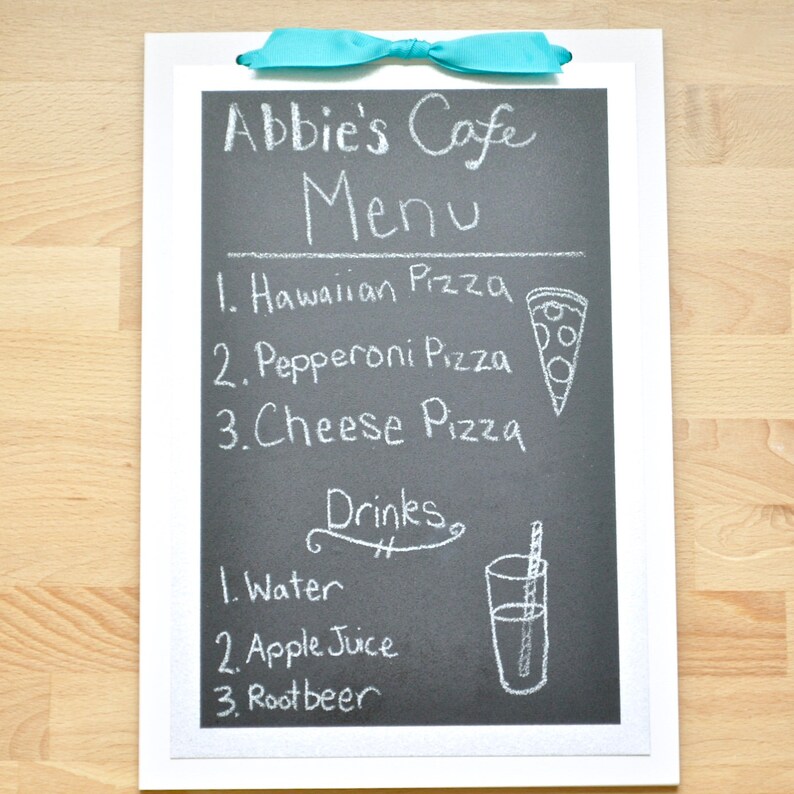 Abbie's Cafe
Menu
1. Hawaiian Pizza
2. Pepperoni Pizza
3. Cheese Pizza
Drinks
1. Water
2. Apple Juice
3. Rootbeer